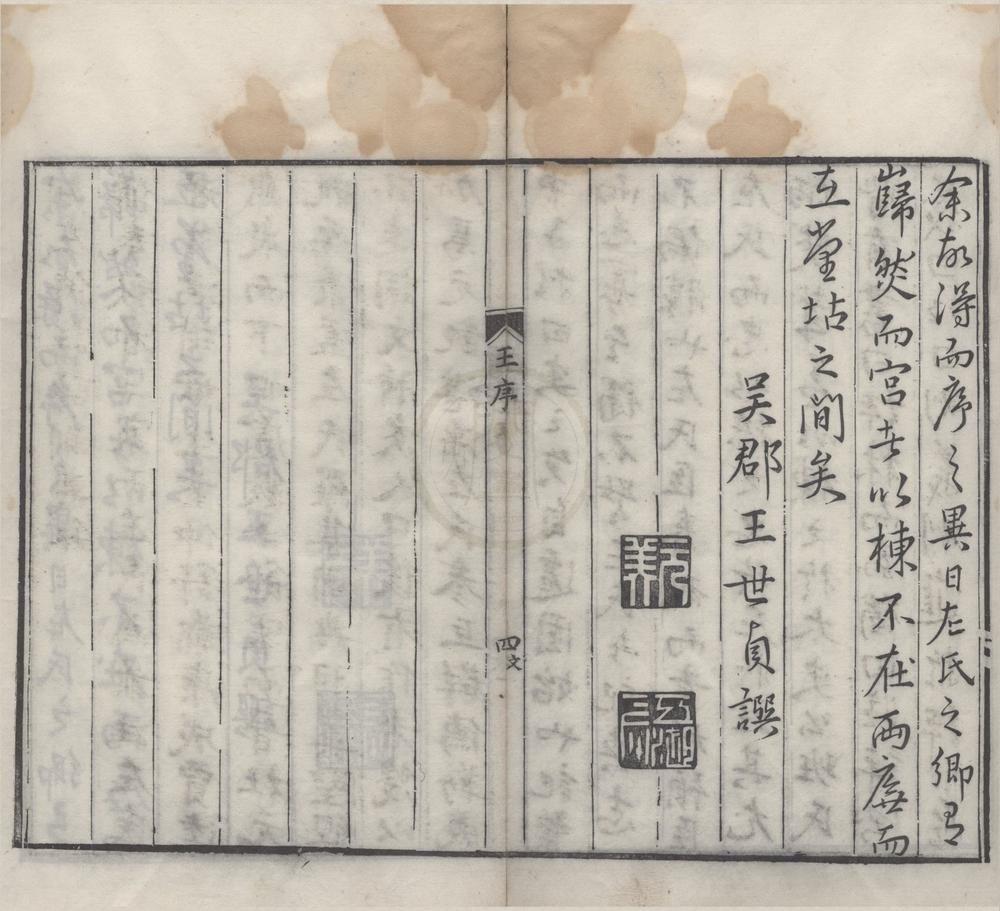 余故得而序之異日左氏之鄉有
巋然而宮者以棟不在兩廡而
在堂坫之間矣
吳郡王世貞撰
元美
王序
四
文